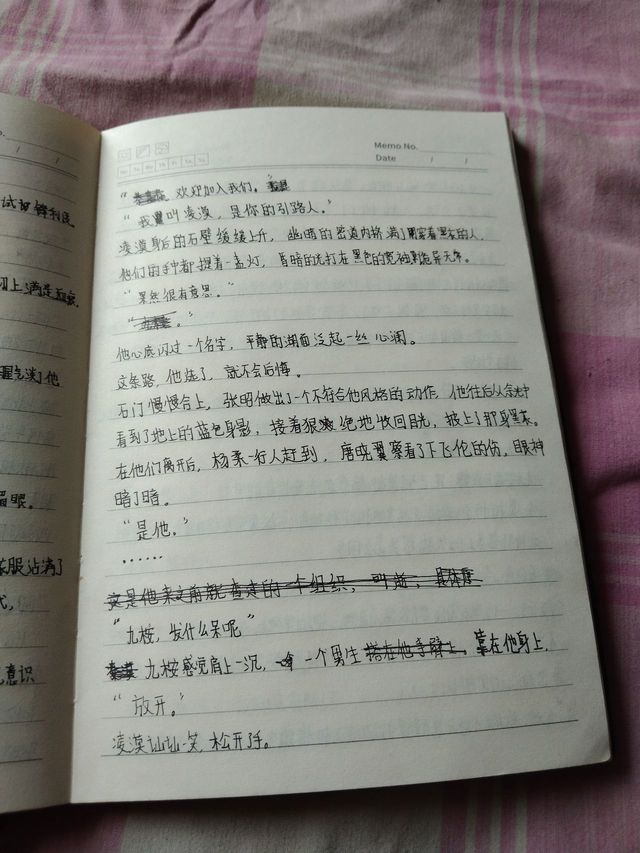 Memo No.
Date / /
Mo Tu We Th Fr Sa Su
试 锋利
上满是
了他
眼。
衣服沾满了
意识
" 欢迎加入我们。"
"我叫凌漠，是你的引路人。"
凌漠身后的石壁缓缓上升，幽暗的密道内挤满了脚穿着黑衣的人，
他们的手中都提着一盏灯，昏暗的光打在黑色的宽袖更诡异无常。
"果然很有意思。"
" 。"
他心底闪过一个名字，平静的湖面泛起一丝心澜。
这条路，他选了，就不会后悔。
石门慢慢合上，张明做出了一个不符合他风格的动作，他往后从余光中
看到了地上的蓝色身影，接着狠狠绝地收回目光，披上了那身黑衣。
在他们离开后，杨柔一行人赶到，唐晓翼察看了下飞伦的伤，眼神
暗了暗。
"是他。"
······
这是他来之前就查走的一个组织，叫
"九桉，发什么呆呢"
九桉感觉肩上一沉，一个男生搭在他手臂上，靠在他身上，
"放开。"
凌漠讪讪一笑 松开了手。